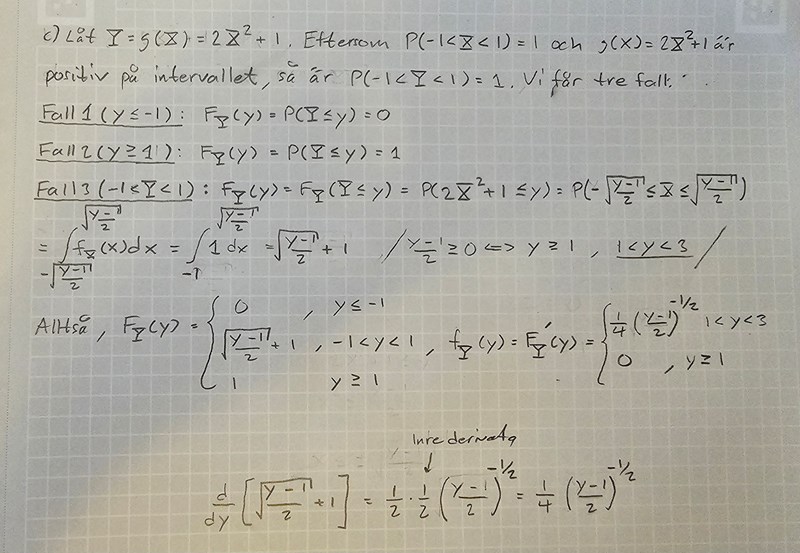 c) Låt Y = g(X) = 2X² + 1. Eftersom P(-1<X<1) = 1 och g(X) = 2X²+1 är
positiv på intervallet, så är P(-1<Y<1) = 1. Vi får tre fall:
Fall 1 (y ≤ -1): F_Y(y) = P(Y ≤ y) = 0
Fall 2 (y ≥ 1): F_Y(y) = P(Y ≤ y) = 1
Fall 3 (-1<Y<1): F_Y(y) = F_Y(Y ≤ y) = P(2X²+1 ≤ y) = P(-√((y-1)/2) ≤ X ≤ √((y-1)/2))
= ∫_{-√((y-1)/2)}^{√((y-1)/2)} f_X(x)dx = ∫_{-1}^{√((y-1)/2)} 1 dx = √((y-1)/2) + 1 / (y-1)/2 ≥ 0 ⟺ y ≥ 1, 1<y<3 /
Alltså, F_Y(y) = { 0, y ≤ -1
√((y-1)/2) + 1, -1<y<1, f_Y(y) = F_Y'(y) = { 1/4 ((y-1)/2)^(-1/2) 1<y<3
1 y ≥ 1
0, y ≥ 1
Inre derivata
↓
d/dy [√((y-1)/2) + 1] = 1/2 · 1/2 ((y-1)/2)^(-1/2) = 1/4 ((y-1)/2)^(-1/2)